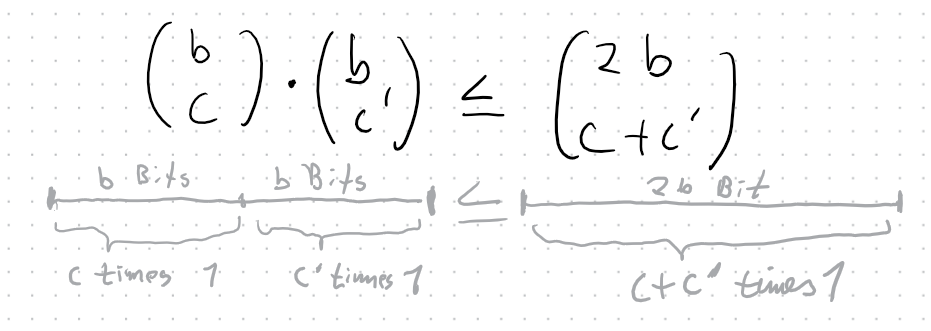 (b c) · (b c') ≤ (2b c+c')
b Bits b Bits ≤ 2b Bit
c times 1 c' times 1 c+c' times 1